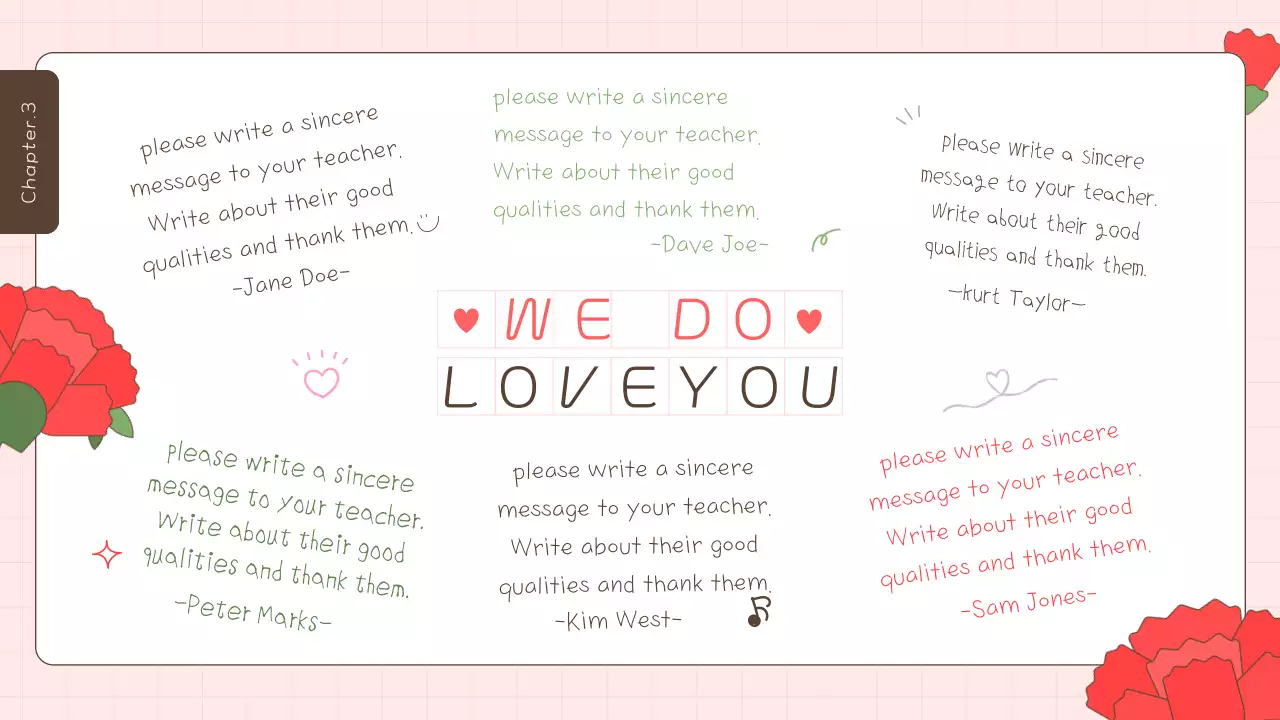 Chapter.3
please write a sincere
message to your teacher.
Write about their good
qualities and thank them.
-Jane Doe-
please write a sincere
message to your teacher.
Write about their good
qualities and thank them.
-Dave Joe-
please write a sincere
message to your teacher.
Write about their good
qualities and thank them.
-kurt Taylor-
WE DO
LOVEYOU
please write a sincere
message to your teacher.
Write about their good
qualities and thank them.
-Peter Marks-
please write a sincere
message to your teacher.
Write about their good
qualities and thank them.
-Kim West-
please write a sincere
message to your teacher.
Write about their good
qualities and thank them.
-Sam Jones-